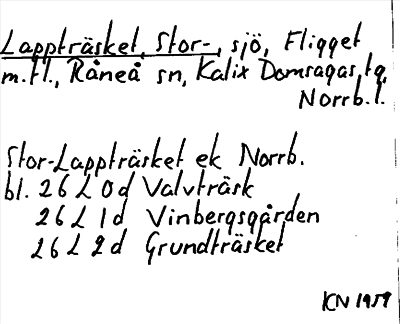 Lappträsket, Stor-, sjö, Fligget
m.fl., Råneå sn, Kalix Domsagas tg,
Norrb.l.
Stor-Lappträsket ek Norrb.
bl. 26 L 0d Valvträsk
26 L 1d Vinbergsgården
26 L 2d Grundträsket
KN 1959